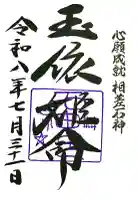 心願成就 相差石神
玉依姫命
令和八年七月三十一日